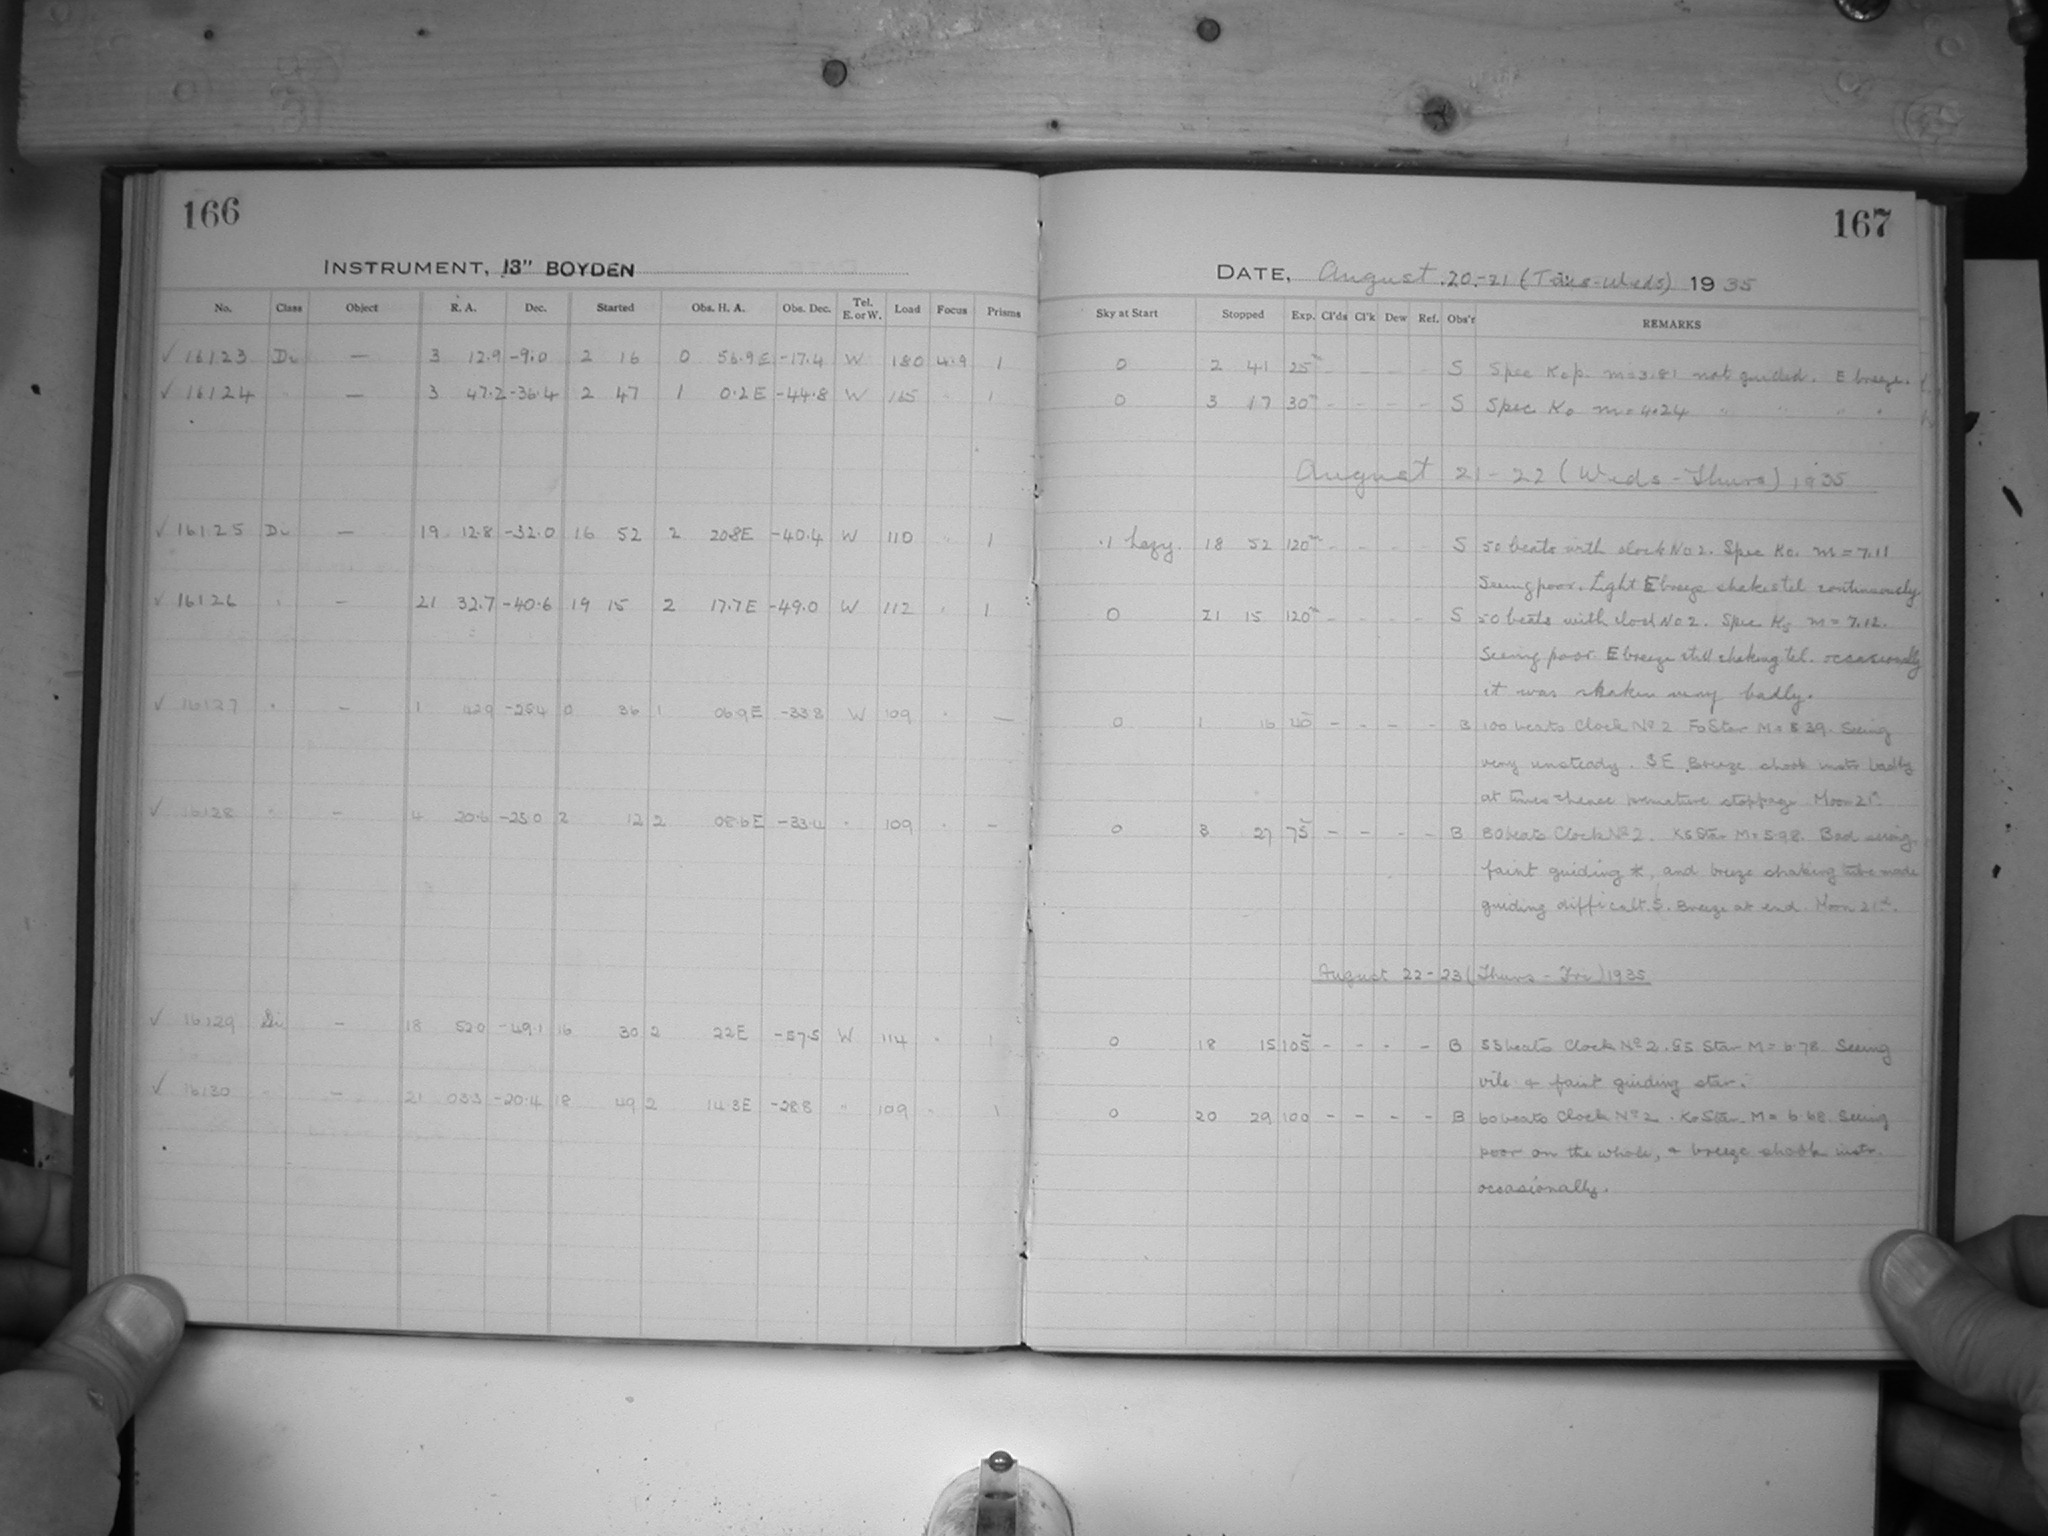 166
INSTRUMENT, 13" BOYDEN
No. Class Object R. A. Dec. Started Obs. H. A. Obs. Dec. Tel. E. or W. Load Focus Prisms
✓ 16123 — 3 12.9 -9.0 2 16 0 56.9E -17.4 W 180 4.9 1
✓ 16124 " — 3 47.2 -36.4 2 47 1 0.2E -44.8 W 165 " 1
✓ 16125 — 19 12.8 -32.0 16 52 2 20.8E -40.4 W 110 " 1
✓ 16126 " — 21 32.7 -40.6 19 15 2 17.7E -49.0 W 112 " 1
✓ 16127 " — 1 42.9 -25.4 0 36 1 06.9E -33.8 W 109 " —
✓ 16128 " — 4 20.6 -25.0 2 12 2 08.6E -33.4 " 109 " —
✓ 16129 — 18 52.0 -49.1 16 30 2 22E -57.5 W 114 " 1
✓ 16130 — 21 03.3 -20.4 18 49 2 14.3E -28.8 " 109 " 1
167
DATE, August 20-21 (Tues-Weds) 1935
Sky at Start Stopped Exp. Cl'ds Cl'k Dew Ref. Obs'r REMARKS
0 2 41 25m - - - - S Spec K0p. m=3.81 not guided. E breeze.
0 3 17 30m - - - - S Spec K0 m=4.24 " " " "
August 21-22 (Weds-Thurs) 1935
.1 hazy. 18 52 120m - - - - S 50 beats with clock No 2. Spec K0. m=7.11
Seeing poor. Light E breeze shakes tel continuously
0 21 15 120m - - - - S 50 beats with clock No 2. Spec K5 m=7.12.
Seeing poor E breeze still shaking tel. occasionally
it was shaken very badly.
0 1 16 40m - - - - B 100 beats Clock No 2 F0 Star M=5.39. Seeing
very unsteady. SE Breeze shook instr badly
at times hence premature stoppage Moon 21d
0 3 27 75m - - - - B 80 beats Clock No 2. K5 Star M=5.98. Bad seeing,
faint guiding *, and breeze shaking tube made
guiding difficult. S. Breeze at end. Moon 21d.
August 22-23 (Thurs - Fri) 1935
0 18 15 105m - - - - B 55 beats Clock No 2. G5 Star M=6.78 Seeing
vile & faint guiding star.
0 20 29 100 - - - - B 60 beats Clock No 2. K0 Star M=6.68. Seeing
poor on the whole, & breeze shook instr.
occasionally.